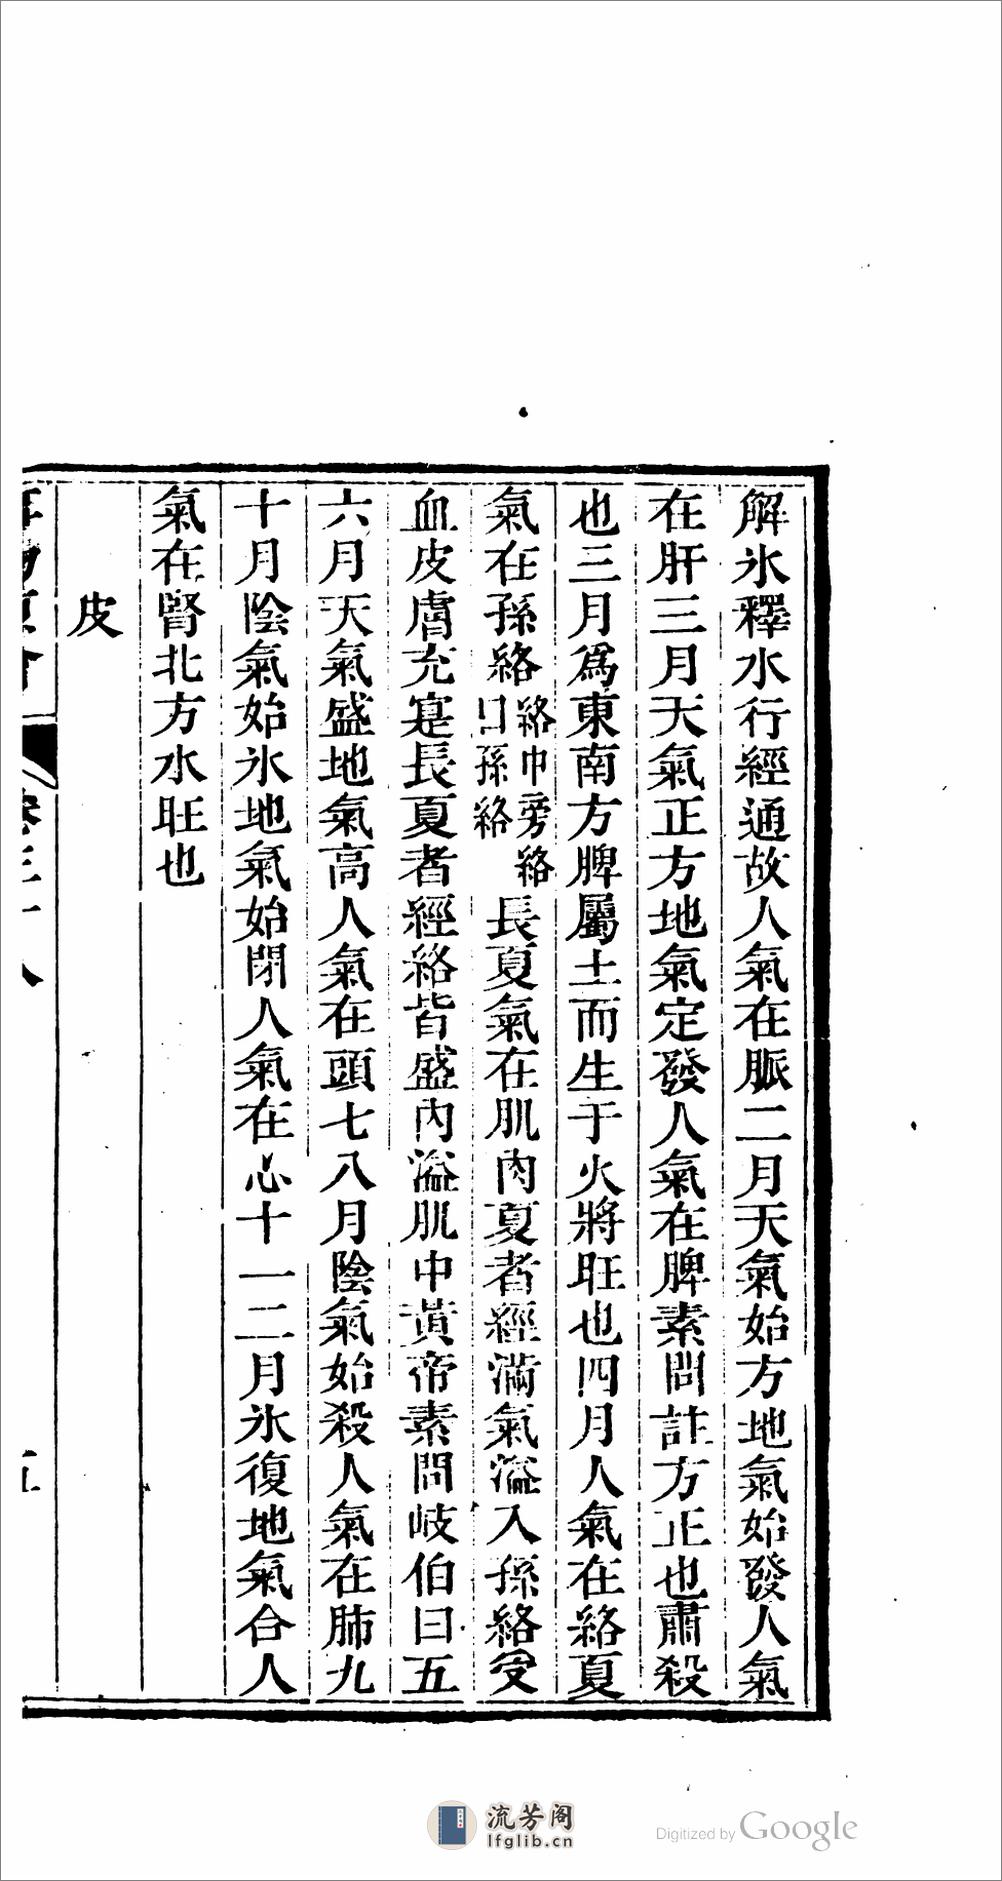 解氷釋水行經通故人氣在脈二月天氣始方地氣始發人氣
在肝三月天氣正方地氣定發人氣在脾素問註方正也肅殺
也三月爲東南方脾屬土而生于火將旺也四月人氣在絡夏
氣在孫絡絡巾旁絡曰孫絡長夏氣在肌肉夏者經滿氣溢入孫絡受
血皮膚充寔長夏者經絡皆盛內溢肌中黃帝素問岐伯曰五
六月天氣盛地氣高人氣在頭七八月陰氣始殺人氣在肺九
十月陰氣始氷地氣始閉人氣在心十一二月氷復地氣合人
氣在腎北方水旺也
皮
卷三十八
五
流芳阁
lfglib.cn
Digitized by Google